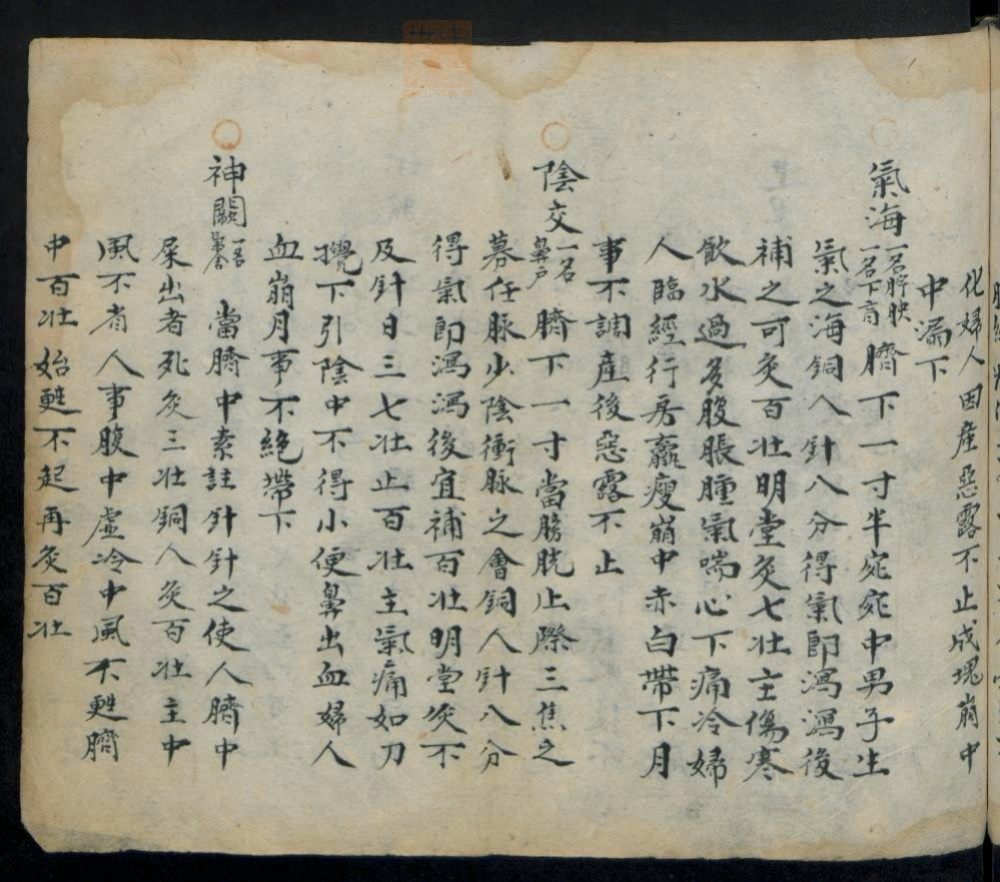 化婦人因産惡露不止成塊崩中
中漏下
氣海一名脖胦一名下肓臍下一寸半宛宛中男子生
氣之海銅人針八分得氣即瀉瀉後
補之可灸百壯明堂灸七壯主傷寒
飲水過多腹脹腫氣喘心下痛冷婦
人臨經行房羸瘦崩中赤白帶下月
事不調産後惡露不止
陰交一名鼻户臍下一寸當膀胱上際三焦之
募任脉少陰衝脉之會銅人針八分
得氣即瀉瀉後宜補百壯明堂灸不
及針日三七壯止百壯主氣痛如刀
攪下引陰中不得小便鼻出血婦人
血崩月事不絶帶下
神闕一名當臍中素註針針之使人臍中
屎出者死灸三壯銅人灸百壯主中
風不省人事腹中虚冷中風不甦臍
中百壯始甦不起再灸百壯